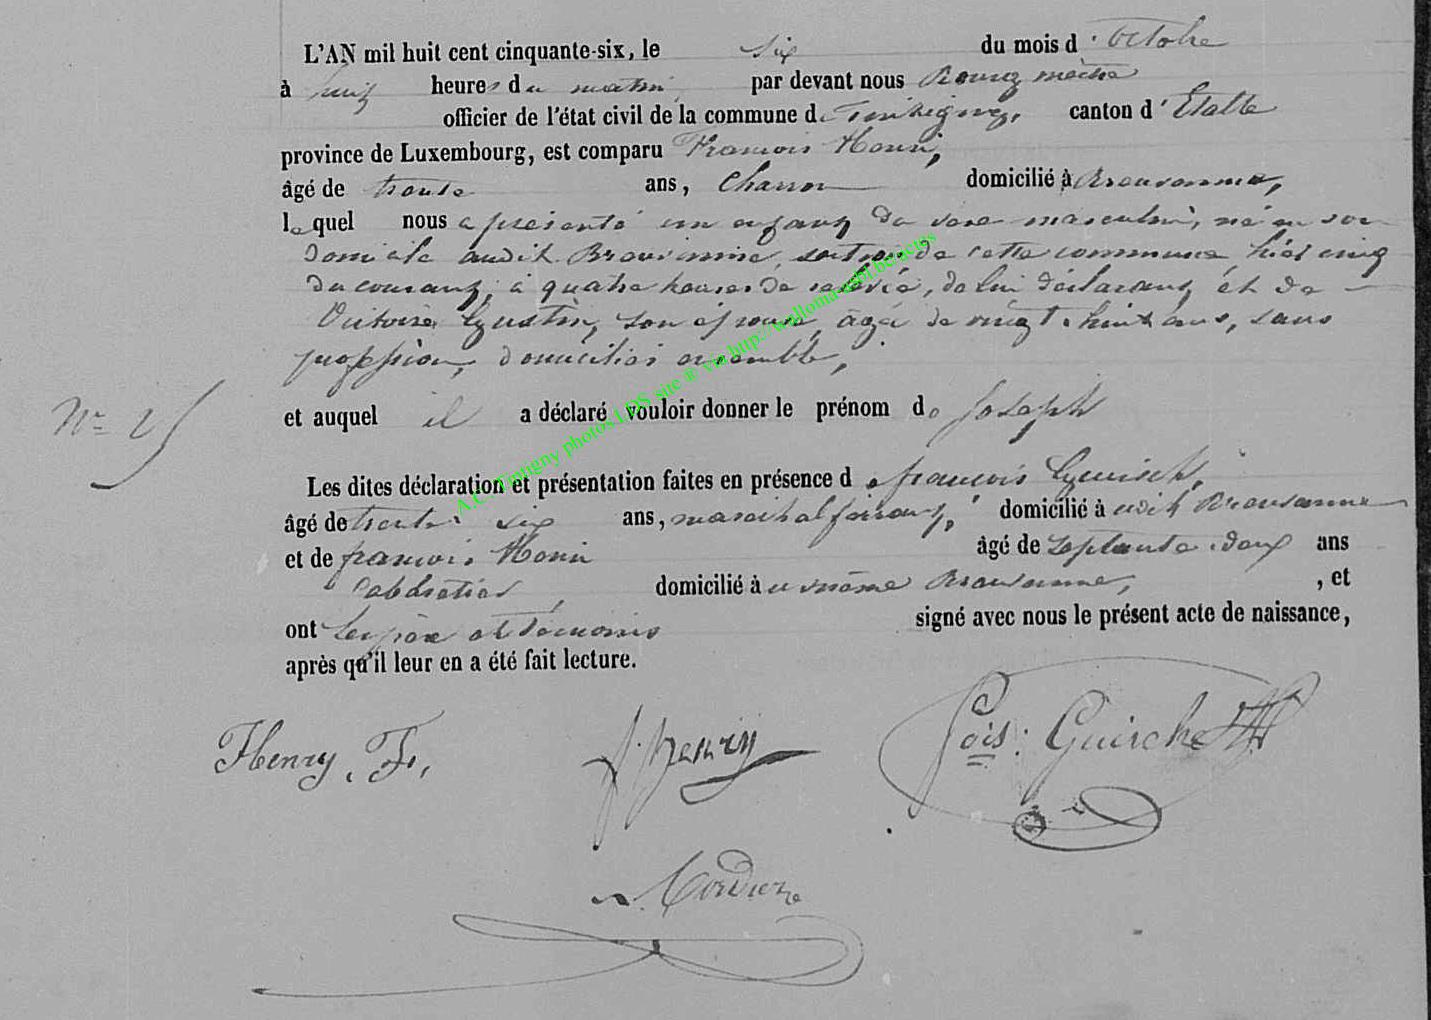 L'AN mil huit cent cinquante-six, le six du mois d'Octobre
à huit heures du matin, par devant nous Bourgmestre
officier de l'état civil de la commune de Tintigny, canton d'Etalle
province de Luxembourg, est comparu François Henri,
âgé de trente ans, Charron domicilié à Breuvanne,
lequel nous a présenté un enfant du sexe masculin, né en son
domicile audit Breuvanne, section de cette commune, hier cinq
du courant, à quatre heures de relevée, de lui déclarant, et de
Victoire son épouse, âgée de vingt-huit ans, sans
profession, domiciliés ensemble,
N° 25
et auquel il a déclaré vouloir donner le prénom de Joseph
Les dites déclaration et présentation faites en présence de françois
âgé de trente six ans, maréchal ferrant, domicilié à audit Breuvanne
et de françois Henri âgé de septante-deux ans
domicilié à u même Breuvanne, , et
ont les père et témoins signé avec nous le présent acte de naissance,
après qu'il leur en a été fait lecture.
Henry, F, f. henry fois: Guirche
A.C. Tintigny photos LDS site ® via http://walloma-asbl.be/actes